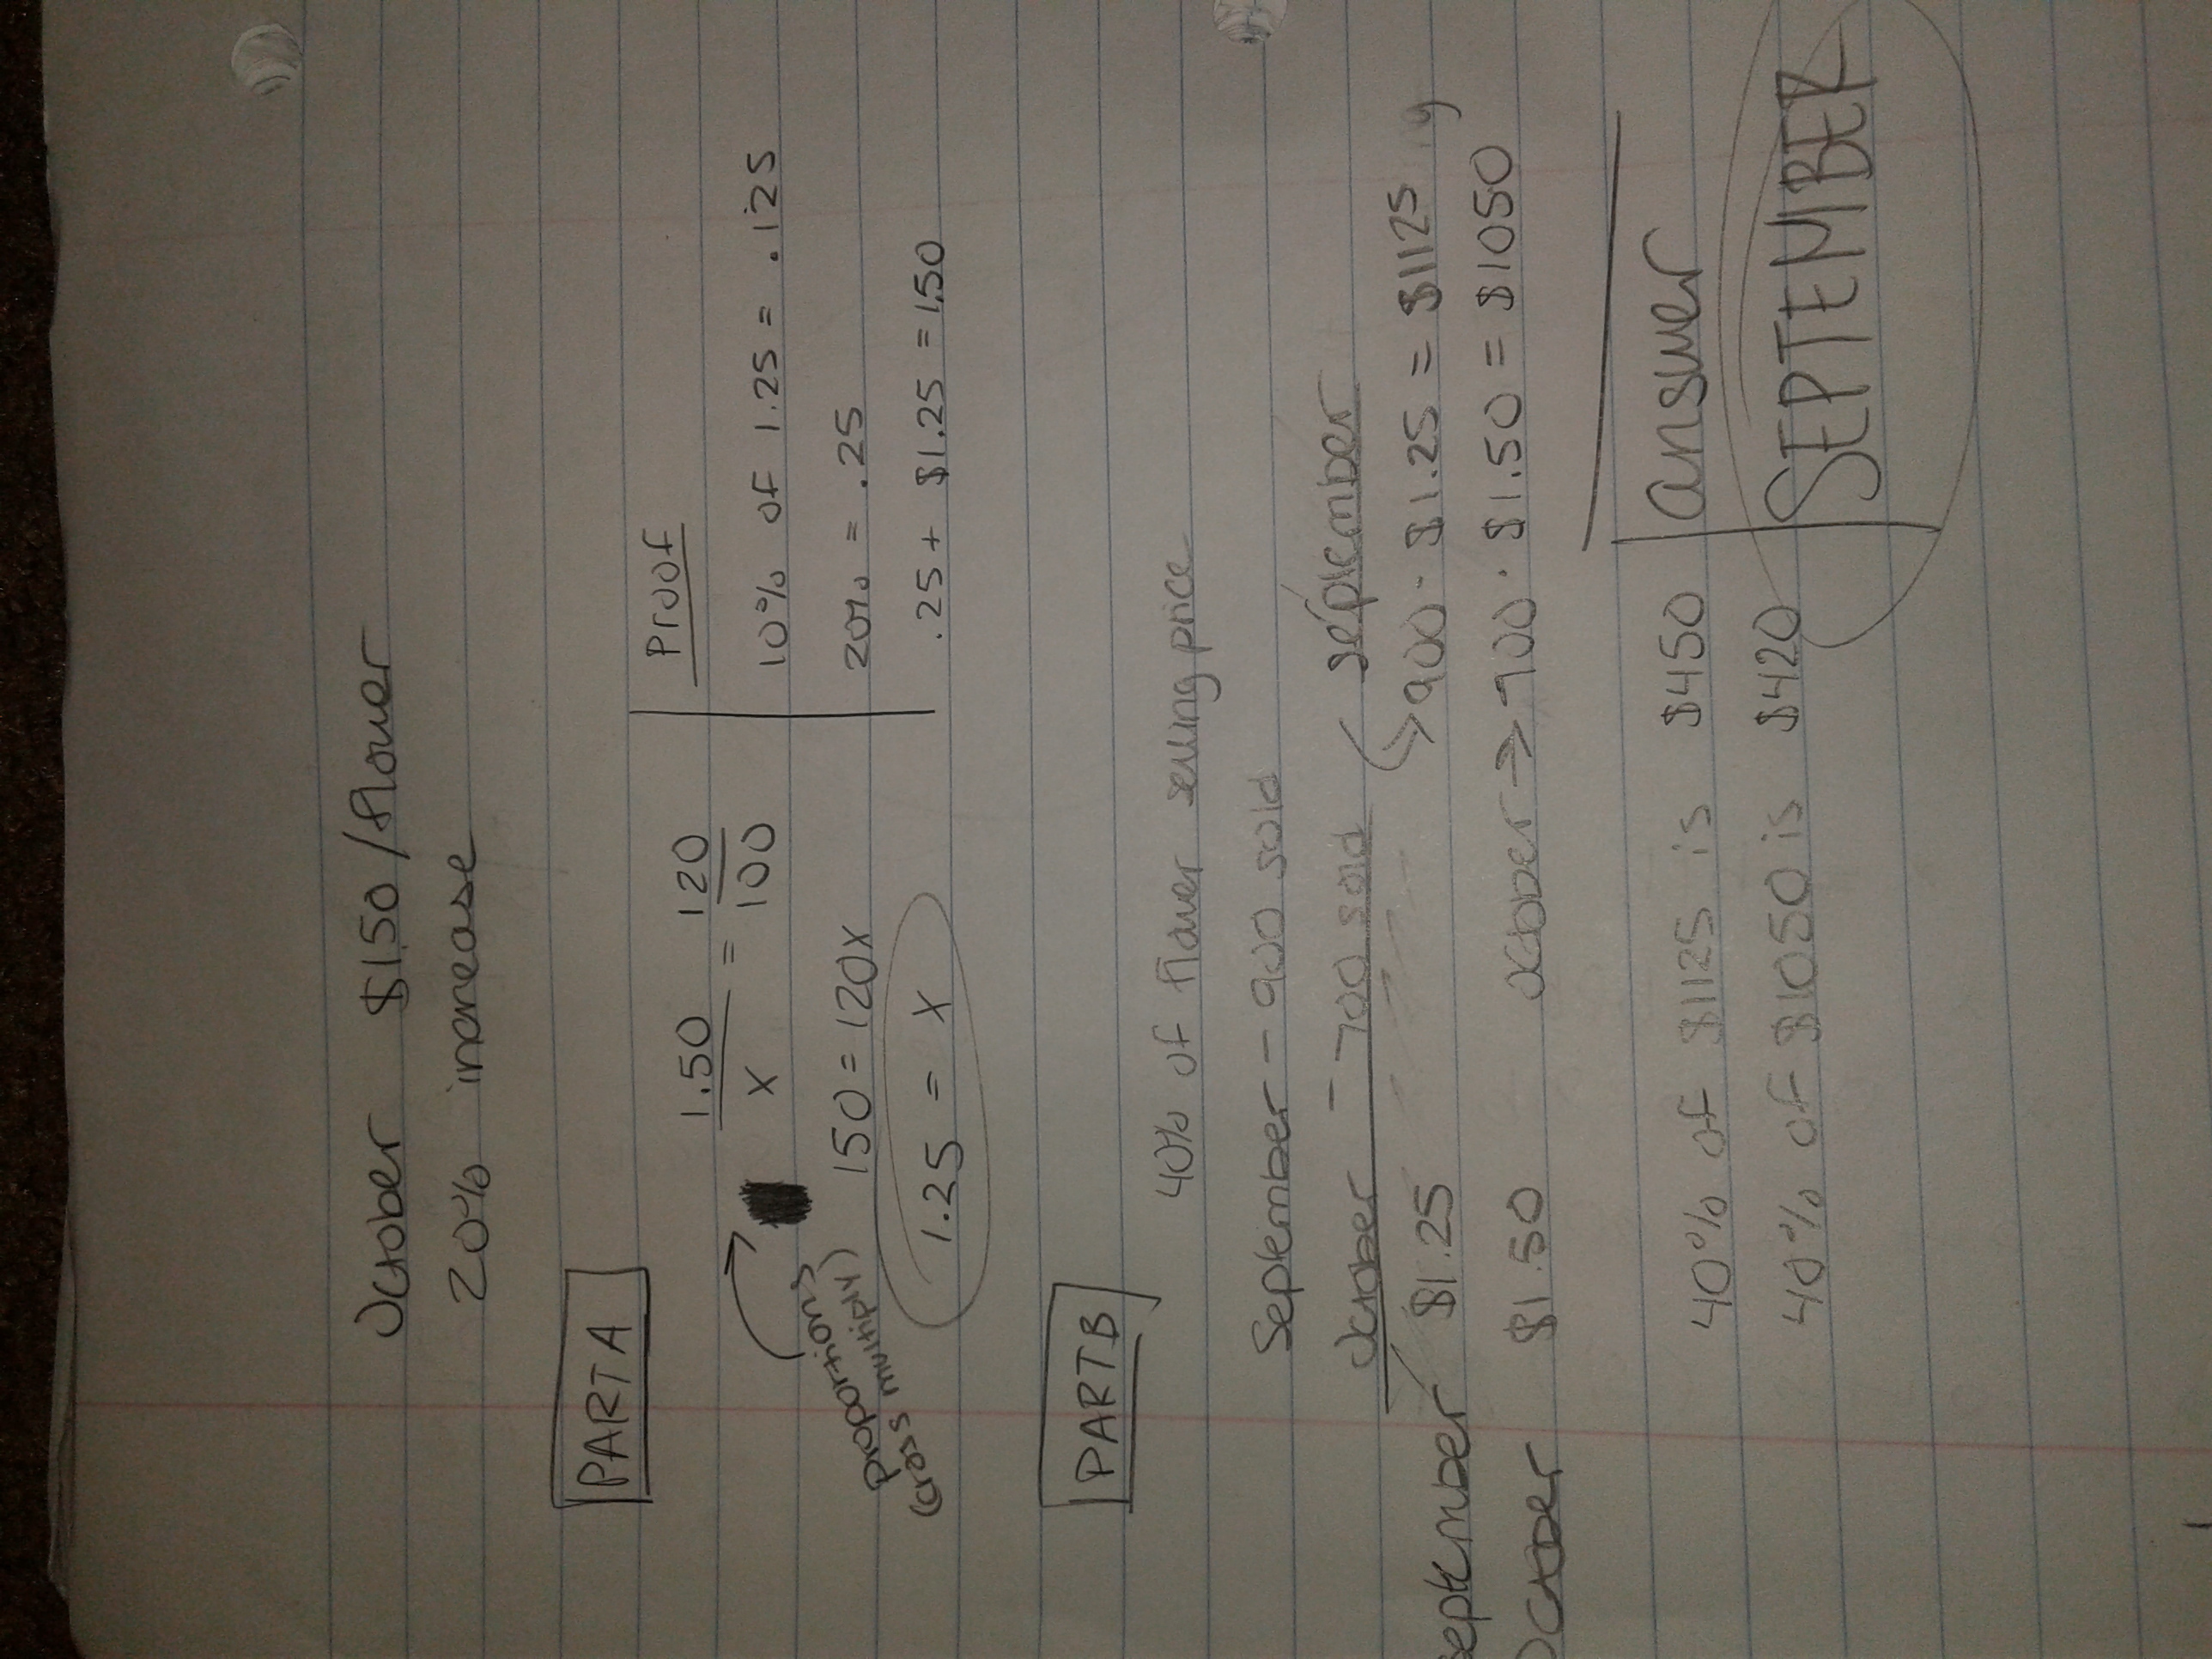 October $1.50/flower
20% increase
PART A
1.50/x = 120/100
proportions
(cross multiply)
150 = 120x
1.25 = x
Proof
10% of 1.25 = .125
20% = .25
.25 + $1.25 = 1.50
PART B
40% of flower selling price
September - 900 sold
October - 700 sold
September $1.25
October $1.50
september
→ 900 · $1.25 = $1125
october → 700 · $1.50 = $1050
40% of $1125 is $450
40% of $1050 is $420
answer
SEPTEMBER